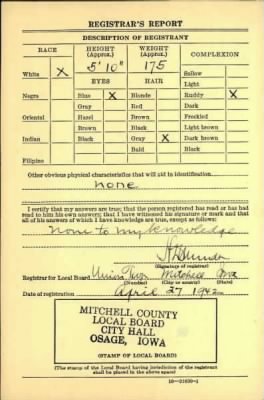 REGISTRAR'S REPORT
DESCRIPTION OF REGISTRANT
RACE HEIGHT (Approx.) WEIGHT (Approx.) COMPLEXION
White X 5' 10" 175 Sallow
EYES HAIR Light
Negro Blue X Blonde Ruddy X
Gray Red Dark
Oriental Hazel Brown Freckled
Brown Black Light brown
Indian Black Gray X Dark brown
Bald Black
Filipino
Other obvious physical characteristics that will aid in identification
none
I certify that my answers are true; that the person registered has read or has had
read to him his own answers; that I have witnessed his signature or mark and that
all of his answers of which I have knowledge are true, except as follows:
None to my knowledge
(Signature of registrar)
Registrar for Local Board Mitchell
(Number) (City or county) (State)
Date of registration April 27 1942
MITCHELL COUNTY
LOCAL BOARD
CITY HALL
OSAGE, IOWA
(STAMP OF LOCAL BOARD)
(The stamp of the Local Board having jurisdiction of the registrant
shall be placed in the above space)
16-21630-1